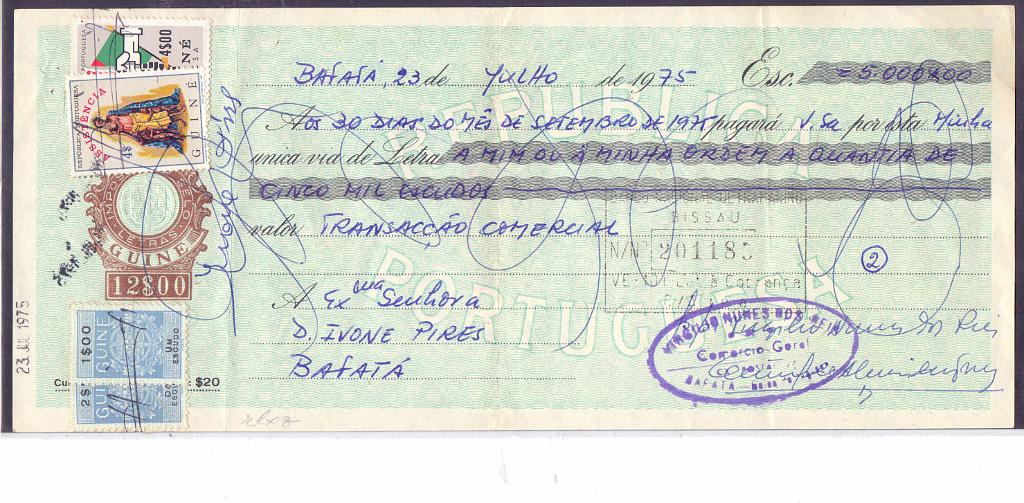 BAFATÁ, 23 de JULHO de 1975 Esc. =5.000$00
Aos 30 DIAS DO MÊS DE SETEMBRO DE 1975 pagará V. Sa por esta Minha
única via de Letra A MIM OU À MINHA ORDEM A QUANTIA DE
CINCO MIL ESCUDOS
valor TRANSACÇÃO COMERCIAL
A Exma Senhora
D. IVONE PIRES
BAFATÁ
REPUBLICA
PORTUGUESA
BISSAU
N/Nº 201183
2
VIRGILIO NUNES DOS
Comercio Geral
BAFATÁ
Ivone Pires
PORTUGUESA
4$00
GUINÉ
REPÚBLICA PORTUGUESA
ASSISTÊNCIA
4$
GUINÉ
LETRAS
GUINÉ
12$00
1$00
GUINÉ
UM ESCUDO
2$
GUI
Cu
: $20
23 JUL 1975